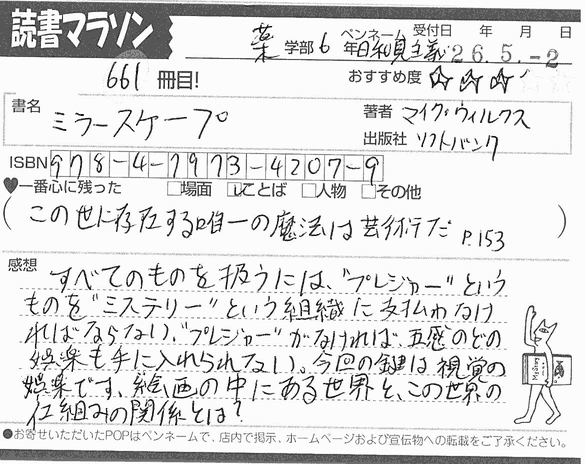 読書マラソン
ペンネーム 受付日 年 月 日
薬 学部 6 年 日和見主義 26.5.-2
661 冊目! おすすめ度 ☆☆☆
書名 ミラースケープ
著者 マイク・ウィルクス
出版社 ソフトバンク
ISBN 978-4-7973-4207-9
♥一番心に残った □場面 ☑ことば □人物 □その他
(この世に存在する唯一の魔法は芸術だ P.153)
感想
すべてのものを扱うには、"プレジャー"という
ものを"ミステリー"という組織に支払わなけ
ればならない。"プレジャー"がなければ、五感のどの
娯楽も手に入れられない。今回の鍵は視覚の
娯楽です。絵画の中にある世界と、この世界の
仕組みの関係とは?
●お寄せいただいたPOPはペンネームで、店内で掲示、ホームページおよび宣伝物への転載をご了承ください。